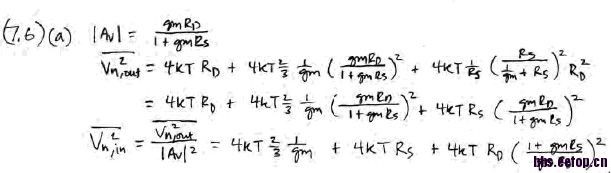 (7.6) (a) |Av| = gmRD / (1 + gmRs)
V²n,out = 4kT RD + 4kT 2/3 1/gm (gmRD / (1 + gmRs))² + 4kT 1/Rs (Rs / (1/gm + Rs))² RD²
= 4kT RD + 4kT 2/3 1/gm (gmRD / (1 + gmRs))² + 4kT Rs (gmRD / (1 + gmRs))²
V²n,in = V²n,out / |Av|² = 4kT 2/3 1/gm + 4kT Rs + 4kT RD (1 + gmRs / gmRD)²